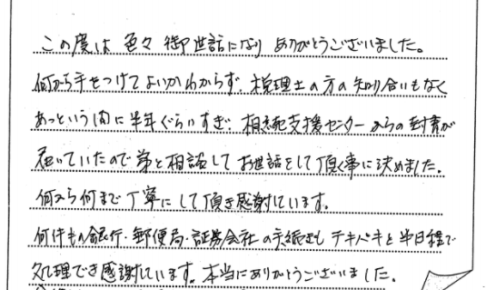 この度は 色々 御世話になり ありがとうございました。
何から手をつけてよいかわからず、税理士の方の知り合いもなく
あっという間に半年ぐらいすぎ、相続支援センターからの封書が
届いていたので弟と相談して お世話をして頂く事に決めました。
何から何まで丁寧にして頂き感謝しています。
何件もの銀行・郵便局・証券会社の手続きも テキパキと半日程で
処理でき感謝しています。本当にありがとうございました。